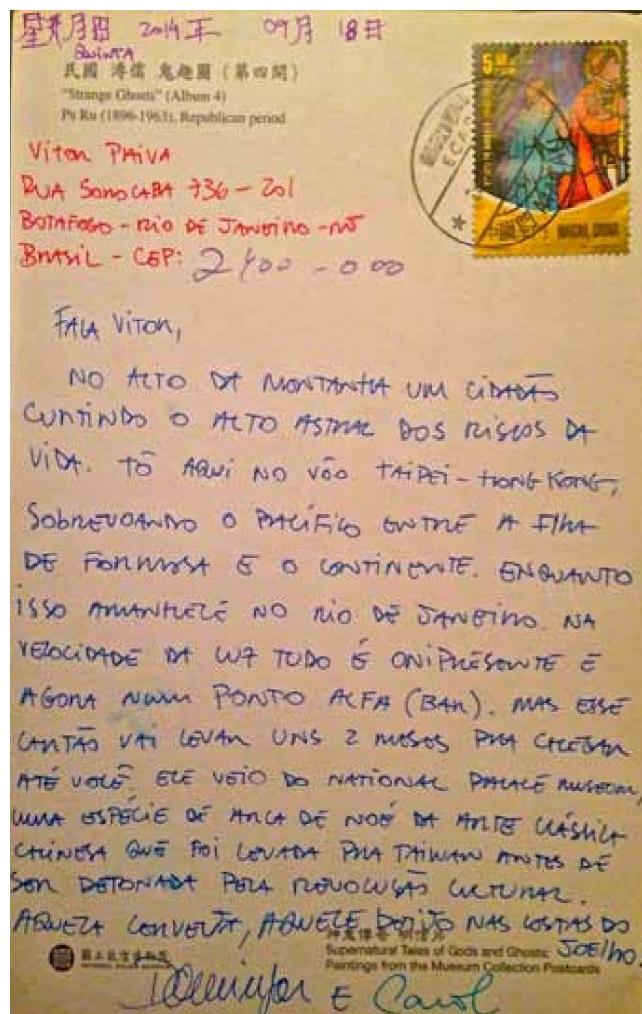 星期四 2014年 09月 18日
QUINTA
民國 溥儒 鬼趣圖(第四開)
"Strange Ghosts" (Album 4)
Pu Ru (1896-1963), Republican period
5.00
MACAU, CHINA
VITOR PAIVA
RUA SOROCABA 736 - 201
BOTAFOGO - RIO DE JANEIRO - RJ
BRASIL - CEP: 2400-000
FALA VITOR,
NO ALTO DA MONTANHA UM CIDADÃO
CURTINDO O ALTO ASTRAL DOS RISCOS DA
VIDA. TÔ AQUI NO VÔO TAIPEI - HONG KONG,
SOBREVOANDO O PACÍFICO ENTRE A ILHA
DE FORMOSA E O CONTINENTE. ENQUANTO
ISSO AMANHECE NO RIO DE JANEIRO. NA
VELOCIDADE DA LUZ TUDO É ONIPRESENTE E
AGORA NUM PONTO ALFA (BAR). MAS ESSE
CARTÃO VAI LEVAR UNS 2 MESES PRA CHEGAR
ATÉ VOCÊ. ELE VEIO DO NATIONAL PALACE MUSEUM,
UMA ESPÉCIE DE ARCA DE NOÉ DA ARTE CLÁSSICA
CHINESA QUE FOI LEVADA PRA TAIWAN ANTES DE
SER DETONADA PELA REVOLUSÃO CULTURAL.
AQUELA CONVERSA, AQUELE BEIJO NAS COSTAS DO
JOELHO.
國立故宮博物院
NATIONAL PALACE MUSEUM
Supernatural Tales of Gods and Ghosts:
Paintings from the Museum Collection Postcards
E Carol